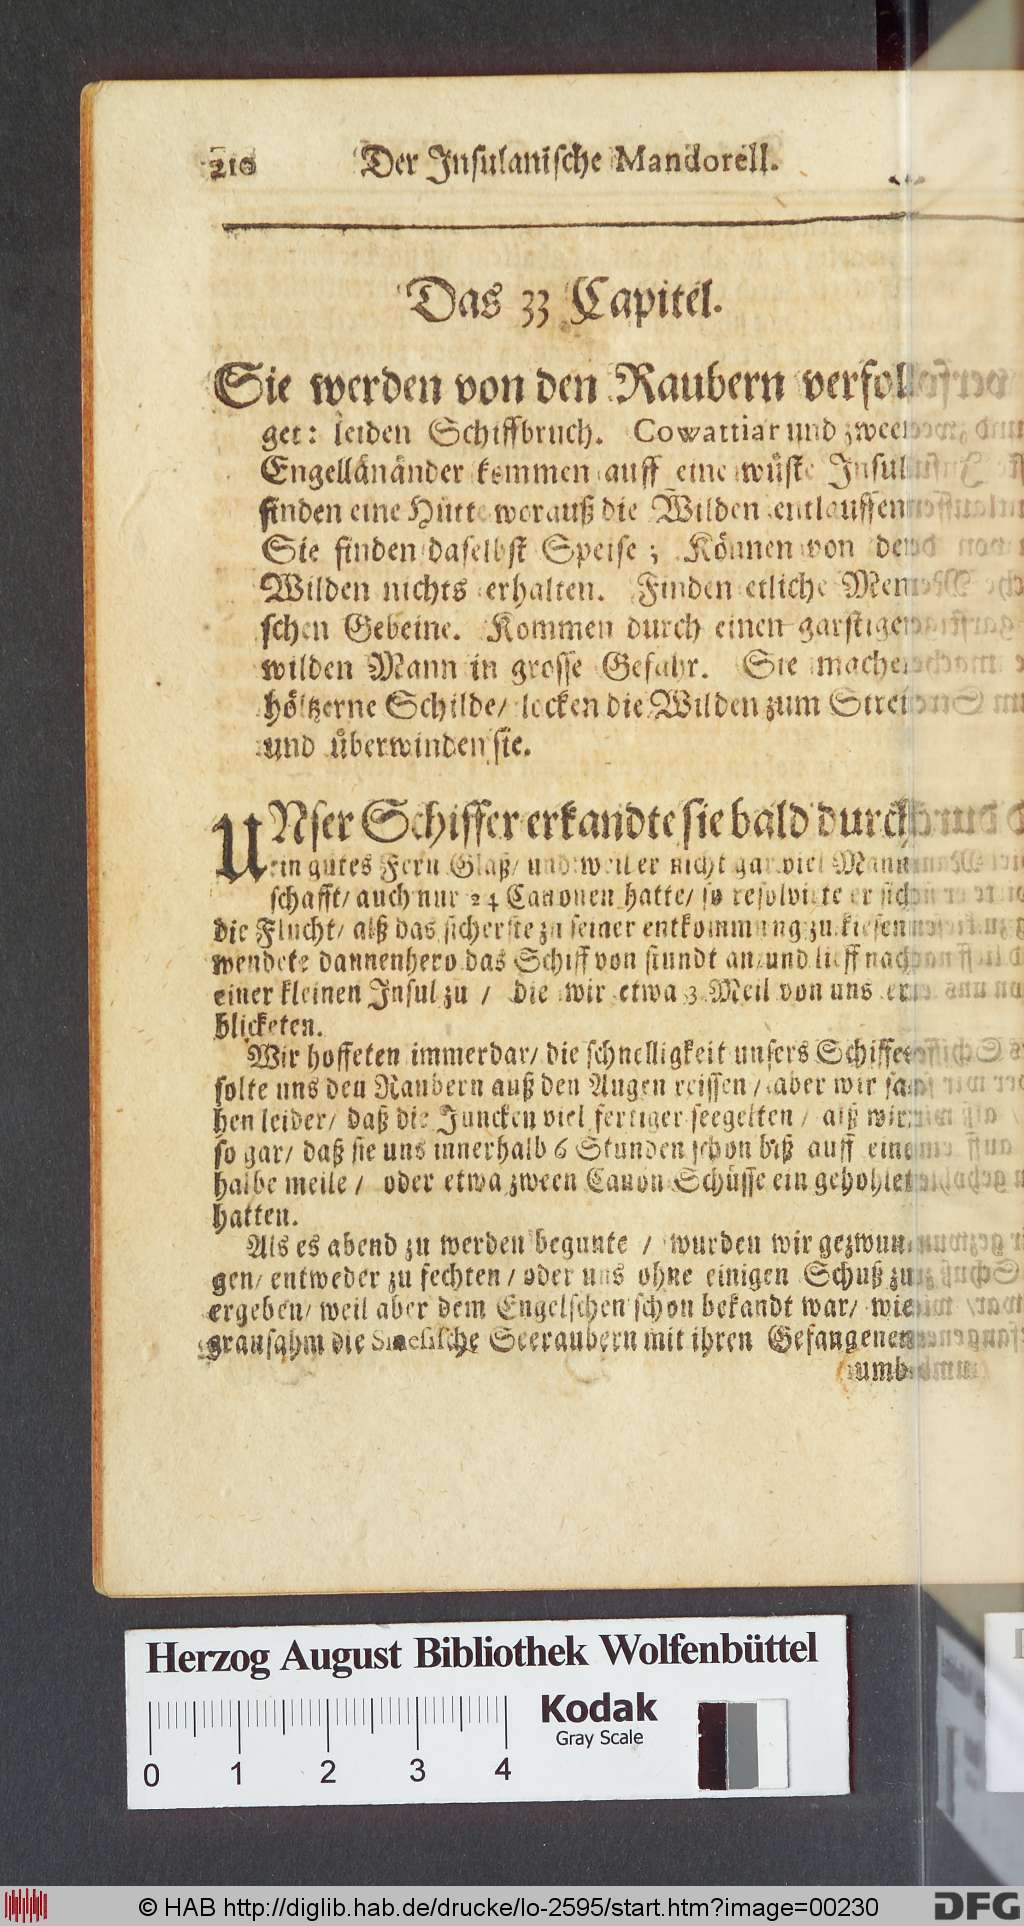 210 Der Insulanische Mandorell.
Das 33 Capitel.
Sie werden von den Raubern verfol-
get: leiden Schiffbruch. Cowattiar und zween
Engellänänder kommen auff eine wüste Insul
finden eine Hütte worauß die Wilden entlauffen
Sie finden daselbst Speise; Können von den
Wilden nichts erhalten. Finden etliche Men-
schen Gebeine. Kommen durch einen garstigen
wilden Mann in grosse Gefahr. Sie machen
höltzerne Schilde/ locken die Wilden zum Streit
und überwinden sie.
UNser Schiffer erkandte sie bald durch
ein gutes Fern Glaß/ und weil er nicht gar viel Mann-
schafft/ auch nur 24 Canonen hatte/ so resolvirte er sich
die Flucht/ alß das sicherste zu seiner entkommung zu kiesen
wendete dannenhero das Schiff von stundt an/ und lieff nach
einer kleinen Insul zu / die wir etwa 3 Meil von uns er-
blicketen.
Wir hoffeten immerdar/ die schnelligkeit unsers Schiffes
solte uns den Raubern auß den Augen reissen/ aber wir sa-
hen leider/ daß die Juncken viel fertiger seegelten / alß wir/
so gar/ daß sie uns innerhalb 6 Stunden schon biß auff eine
halbe meile / oder etwa zween Canon Schüsse ein gehohlet
hatten.
Als es abend zu werden begunte / wurden wir gezwun-
gen/ entweder zu fechten / oder uns ohne einigen Schuß zu
ergeben/ weil aber dem Engelschen schon bekandt war/ wie
grausahm die Sinesische Seeraubern mit ihren Gefangenen
umb-
Herzog August Bibliothek Wolfenbüttel
Kodak
Gray Scale
0 1 2 3 4
© HAB http://diglib.hab.de/drucke/lo-2595/start.htm?image=00230
DFG